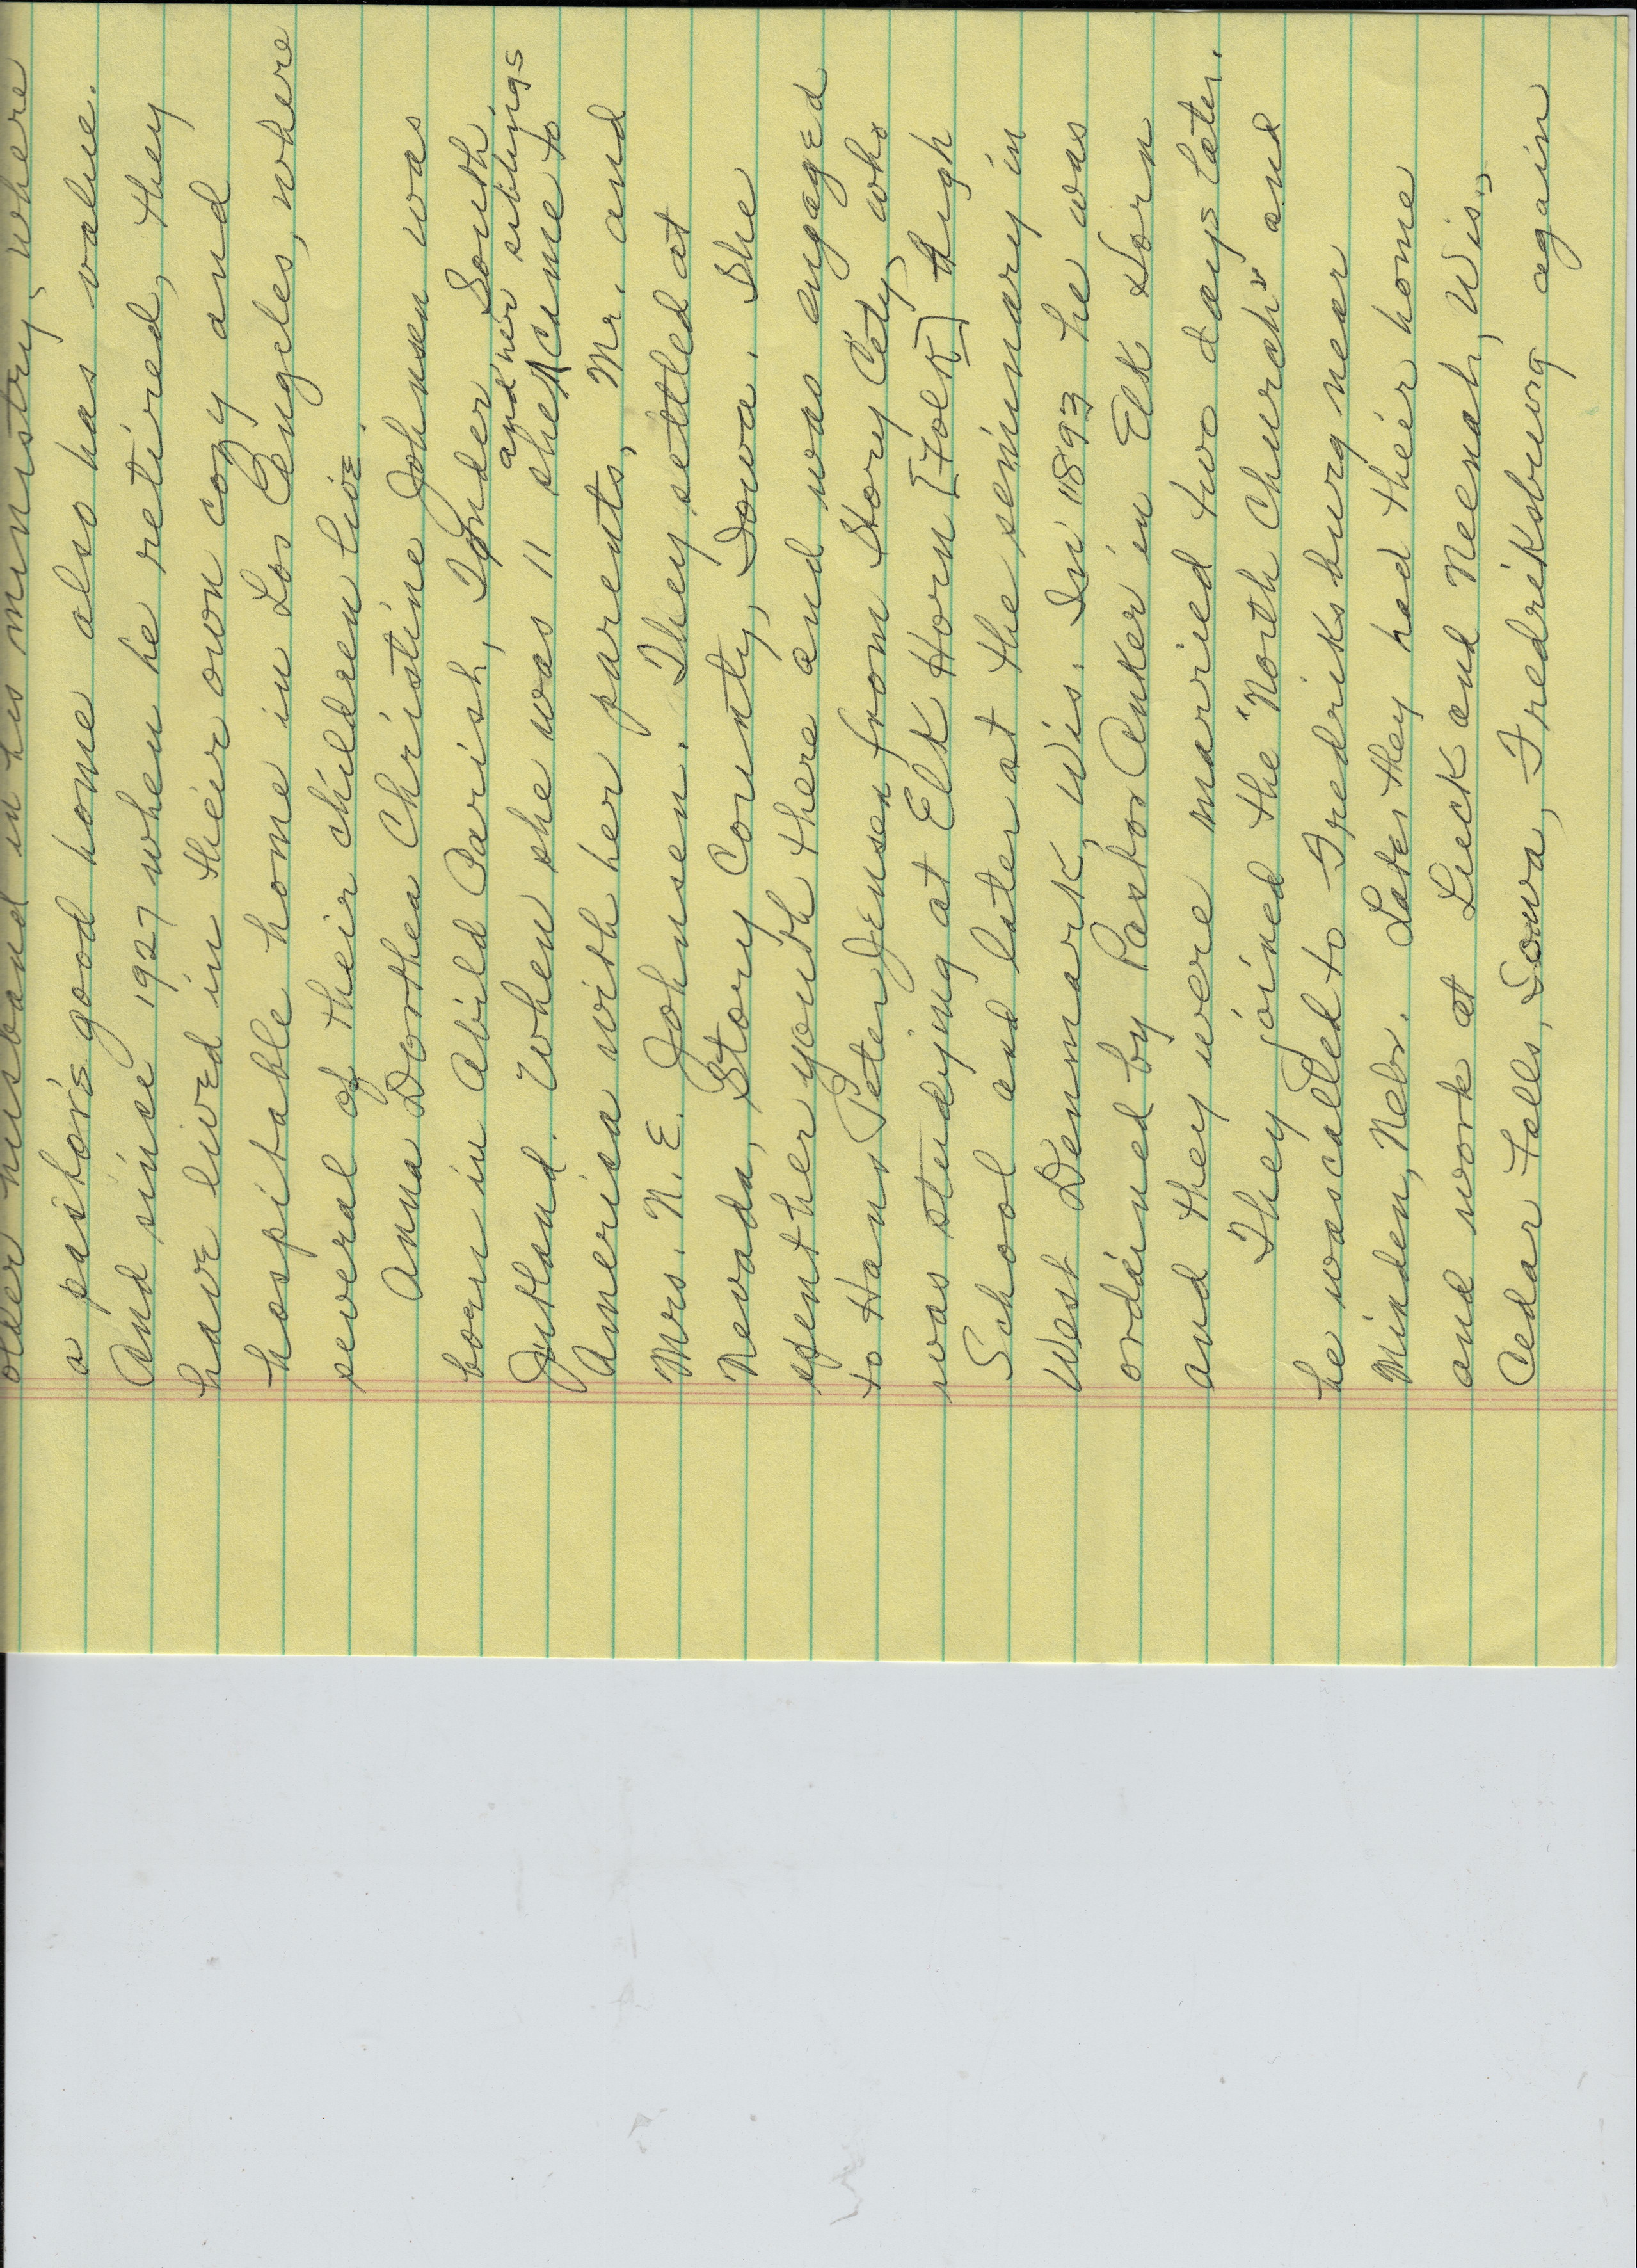 her husband in his ministry, where
a pastor's good home also has value.
And since 1927 when he retired, they
have lived in their own cozy and
hospitable home in Los Angeles, where
several of their children live.
Anna Dorthea Christine Johnsen was
born in Abild Parish, Tønder, South
and her siblings
Jutland. When she was 11 she came to
America with her parents, Mr. and
Mrs. N. E. Johnsen. They settled at
Nevada, Story County, Iowa. She
spent her youth there and was engaged
to Hans Peter Jensen from Story City, who
was studying at Elk Horn [Folk] High
School and later at the seminary in
West Denmark, Wis. In 1893 he was
ordained by Pastor Anker in Elk Horn
and they were married two days later.
They joined the "North Church" and
he was called to Fredriksburg near
Minden, Nebr. Later they had their home
and work at Luck and Neenah, Wis.,
Cedar Falls, Iowa, Fredriksburg again